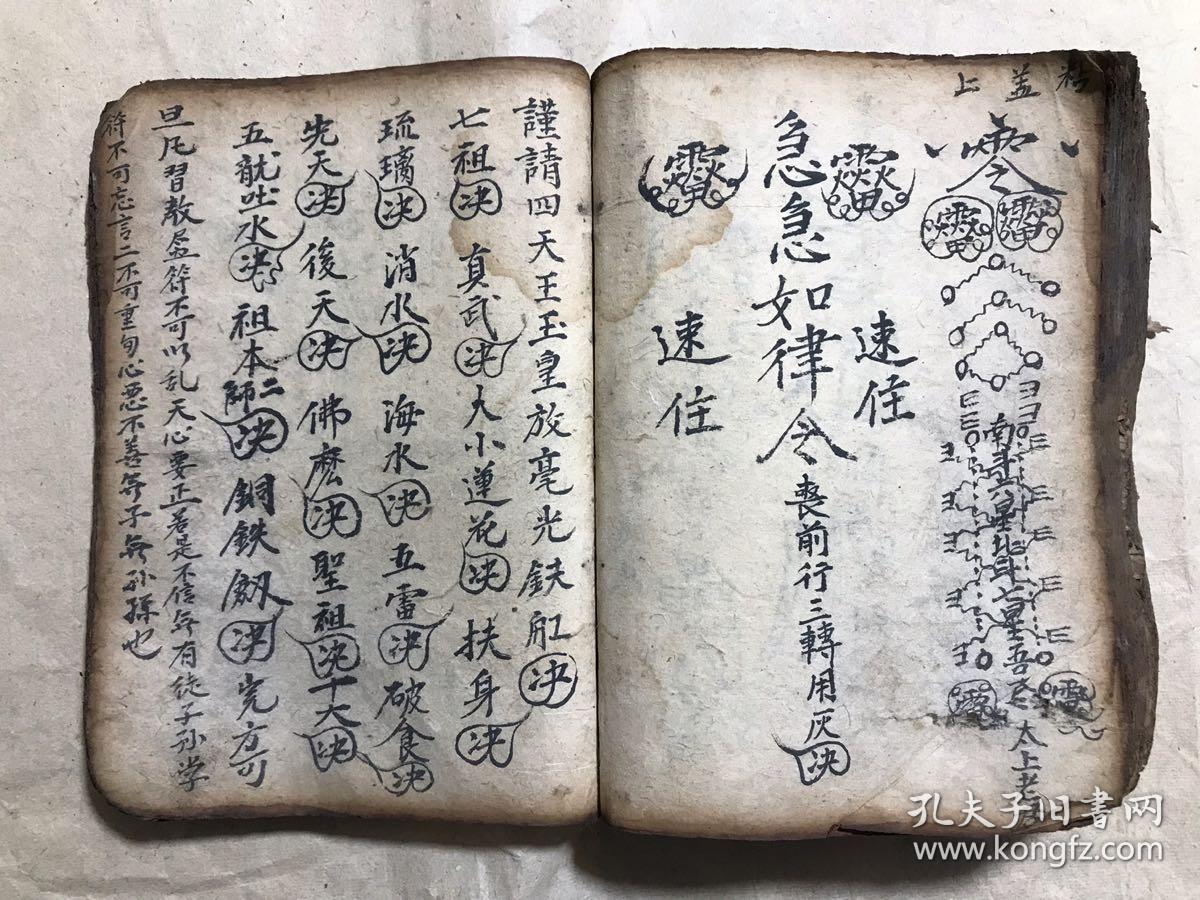 上蓋
南斗六星北斗七星吾奉太上老君
速住
急急如律令喪前行三轉用灰决
速住
謹請四天王玉皇放毫光鈇舡决
七祖决真武决大小蓮花决扶身决
琉璃决消水决海水决五雷决破食决
先天决後天决佛麽决聖祖决十大决
五龍吐水决祖本師二决銅鉄劔决完方可
旦凡習教孟符不可以乱天心要正若是不信无有徒子孙学
符不可忘言二不可重旬心恶不善无子无孙孫也
孔夫子旧书网
www.kongfz.com